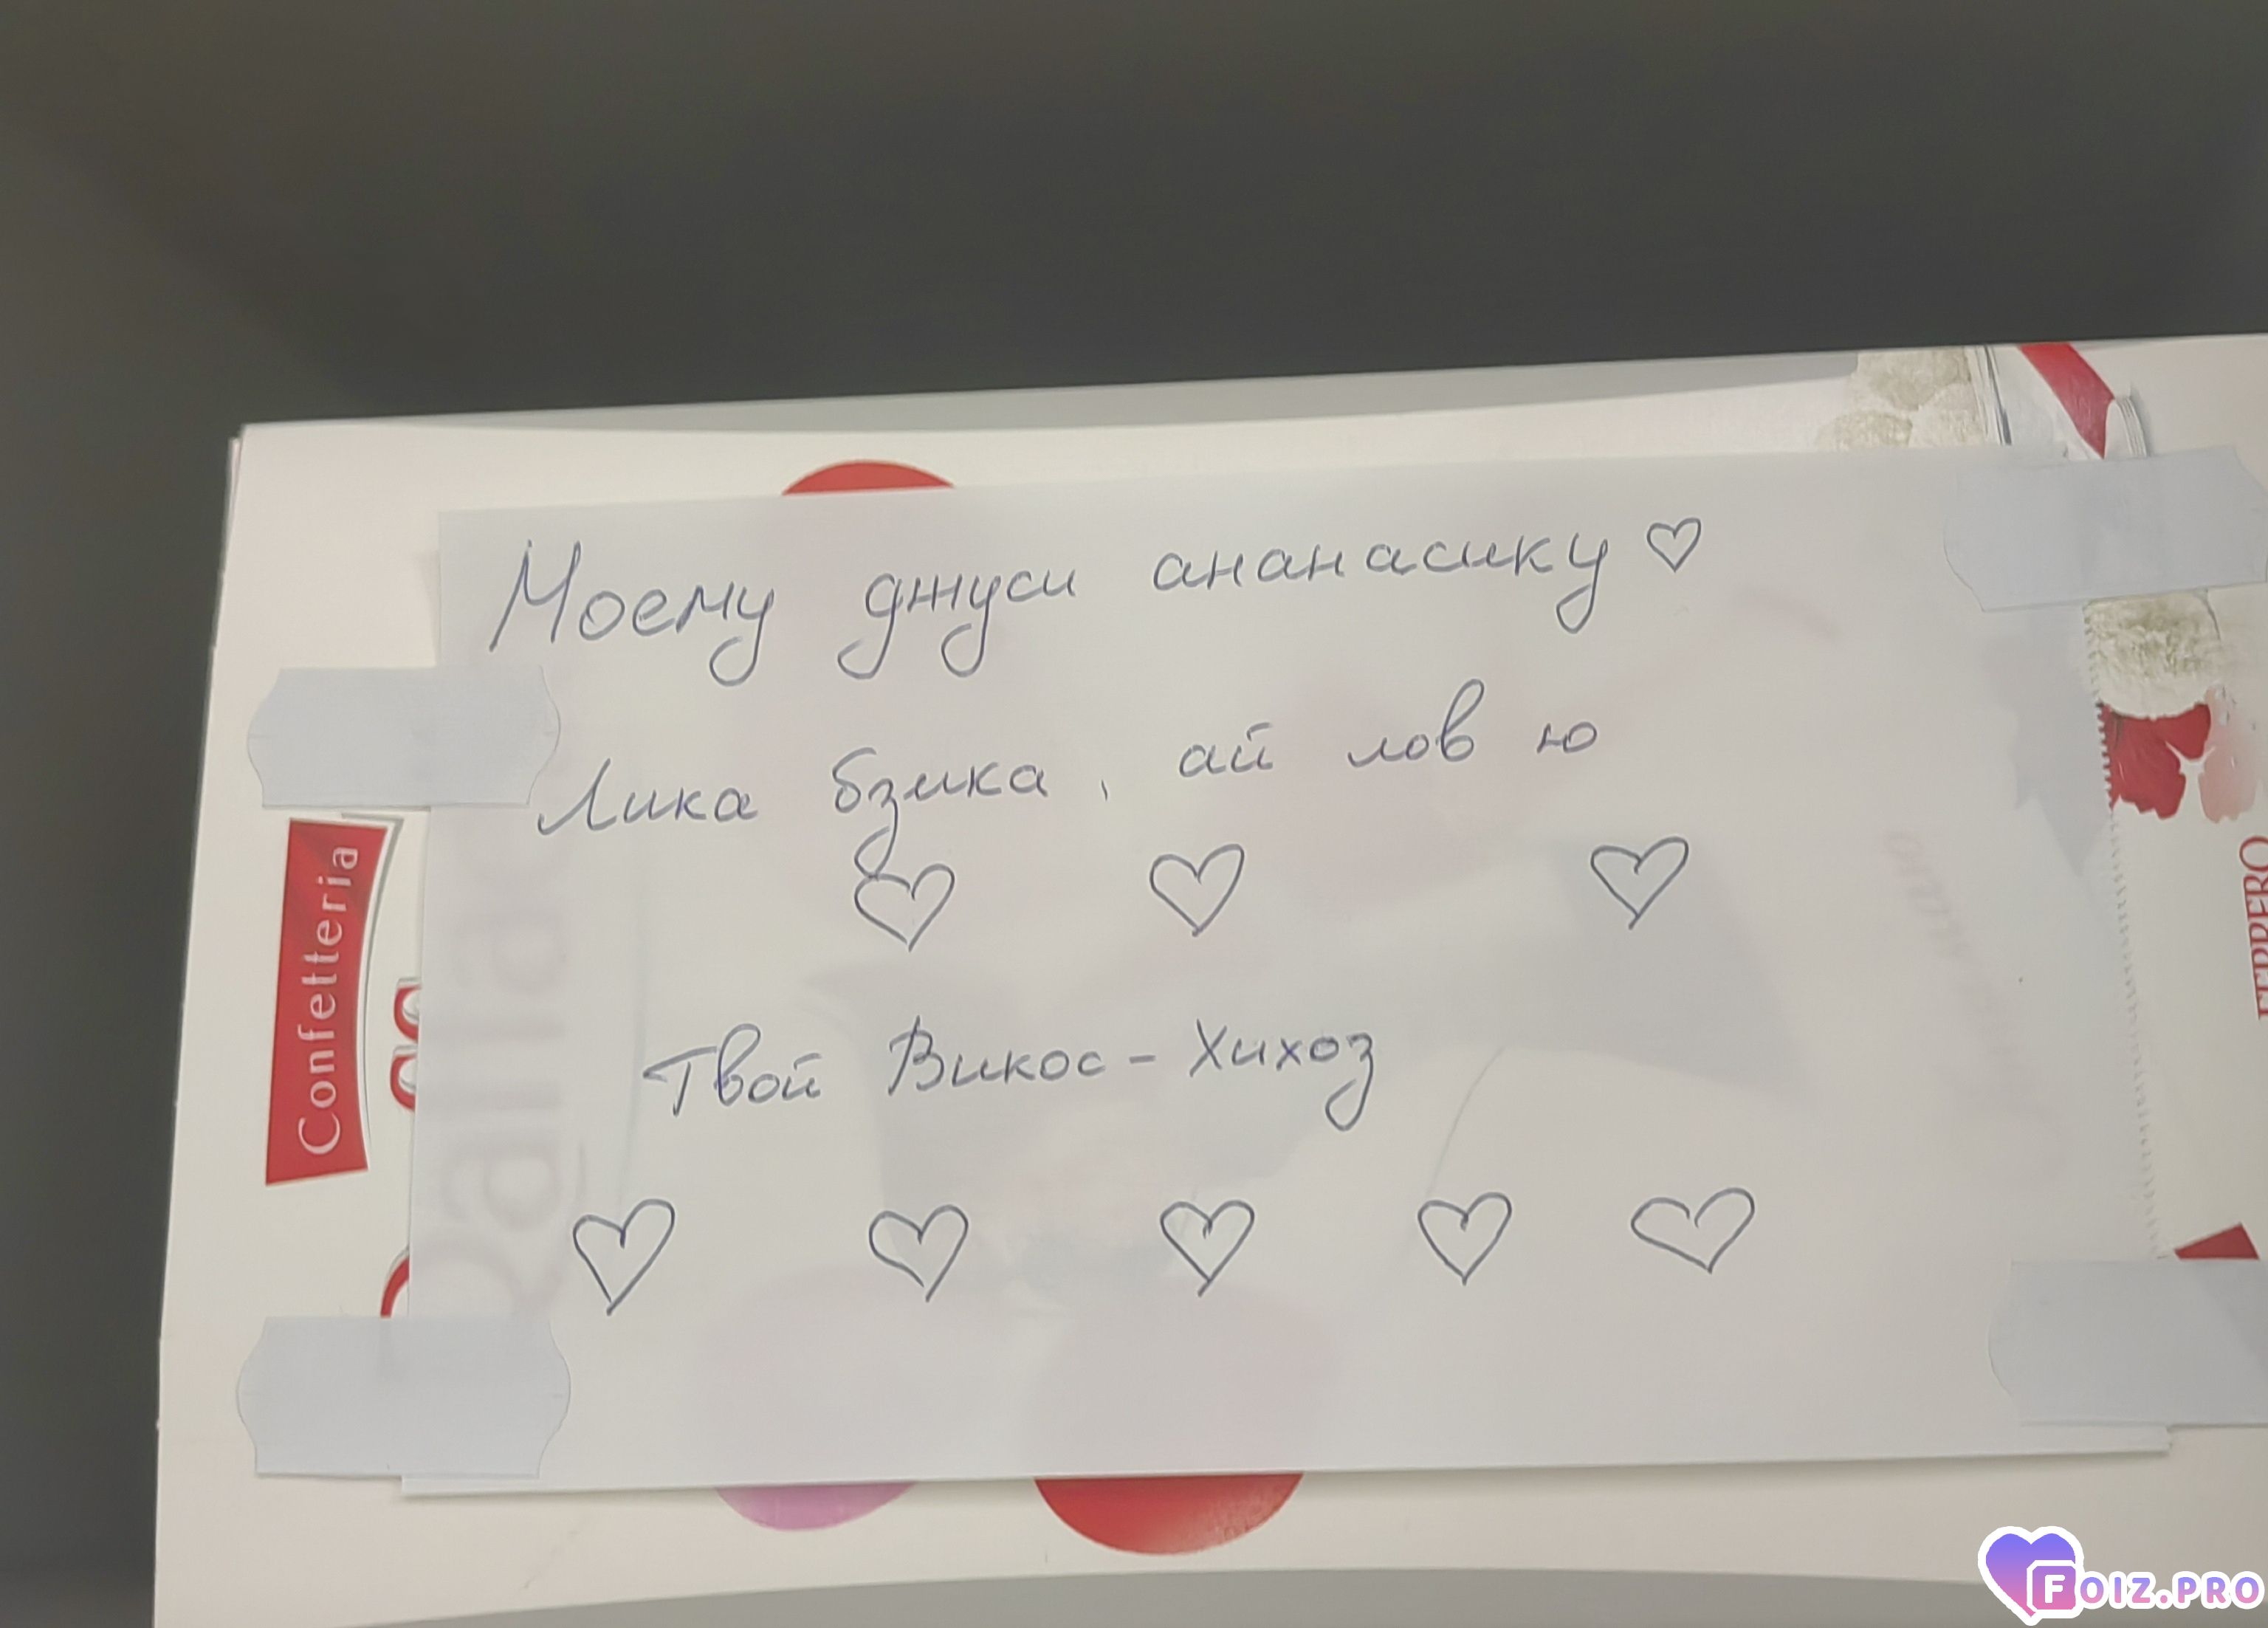 Моему джуси ананасику ♡
Лика бзика, ай лов ю
Твой Викос-Хихоз
Confetteria
Raffaello
FERRERO
FOIZ.PRO